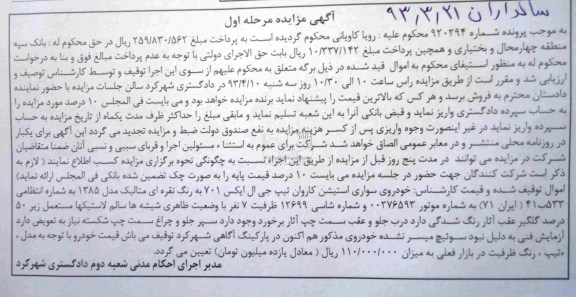 سالداران ۹۳,۳,۲۱
آگهی مزایده مرحله اول
به موجب پرونده شماره ۹۲۰۲۹۴ محکوم علیه : رویا کاویانی محکوم گردیده است به پرداخت مبلغ ۲۵۹/۸۳۰/۵۶۲ ریال در حق محکوم له : بانک سپه
منطقه چهارمحال و بختیاری و همچنین پرداخت مبلغ ۱۰/۳۳۷/۱۴۲ ریال بابت حق الاجرای دولتی با توجه به عدم پرداخت مبالغ فوق و بنا به درخواست
محکوم له به منظور استیفای محکوم به اموال قید شده در ذیل برگه متعلق به محکوم علیهم از سوی این اجرا توقیف و توسط کارشناس توصیف و
ارزیابی شد و مقرر است از طریق مزایده راس ساعت ۱۰ الی ۱۰/۳۰ روز سه شنبه ۹۳/۴/۱۰ در دادگستری شهرکرد سالن جلسات مزایده با حضور نماینده
دادستان محترم به فروش برسد و هر کس که بالاترین قیمت را پیشنهاد نماید برنده مزایده خواهد بود و می بایست فی المجلس ۱۰ درصد مورد مزایده را
به حساب سپرده دادگستری واریز نماید و قبض بانکی آنرا به این شعبه تسلیم نماید و مابقی مبلغ را حداکثر ظرف مدت یکماه از تاریخ مزایده به حساب
سپرده واریز نماید در غیر اینصورت وجه واریزی پس از کسر هزینه مزایده به نفع صندوق دولت ضبط و مزایده تجدید می گردد این آگهی برای یکبار
در روزنامه محلی منتشر و در معابر عمومی الصاق خواهد شد شرکت برای عموم به استثناء مسئولین اجرا و قربای سببی و نسبی آنان ضمنا متقاضیان
شرکت در مزایده می توانند در مدت پنج روز قبل از مزایده از طریق این اجراء نسبت به چگونگی نحوه برگزاری مزایده کسب اطلاع نمایند ( لازم به
ذکر است شرکت کنندگان جهت حضور در جلسه مزایده می بایست ۱۰ درصد قیمت پایه را به صورت چک تضمین شده بانکی فی المجلس ارائه نماید)
اموال توقیف شده و قیمت کارشناس: خودروی سواری استیشن کاروان تیپ جی ال ایکس ۷۰۱ به رنگ نقره ای متالیک مدل ۱۳۸۵ به شماره انتظامی
۵۳۳ف۴۱ ( ایران ۷۱) به شماره موتور ۰۰۲۷۶۵۹۳ و شماره شاسی ۱۲۶۹۹ ظرفیت ۷ نفر با وضعیت ظاهری شیشه ها سالم لاستیکها مستعمل زیر ۵۰
درصد گلگیر عقب آثار رنگ شدگی دارد درب جلو و عقب سمت چپ آثار برخورد وجود دارد سپر جلو و چراغ سمت چپ شکسته نیاز به تعویض دارد
آزمایش فنی به دلیل نبود سوئیچ میسر نشده خودروی مذکور هم اکنون در پارکینگ آگاهی شهرکرد توقیف می باش قیمت خودرو با توجه به مدل ،
تیپ ، رنگ ظرفیت در بازار فعلی به میزان ۱۱۰/۰۰۰/۰۰۰ ریال ( معادل یازده میلیون تومان) تعیین می گردد.
مدیر اجرای احکام مدنی شعبه دوم دادگستری شهرکرد